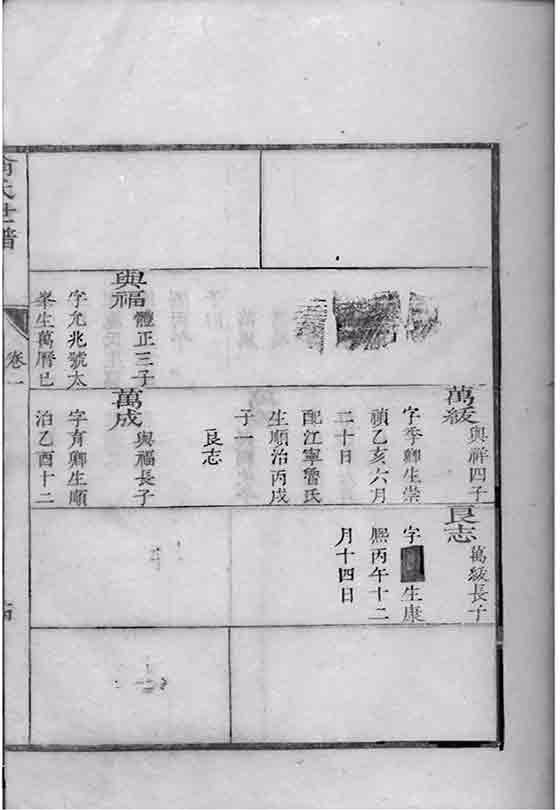 與福
體正三子
字允兆號太
峯生萬曆已
萬綬
與祥四子
字季卿生崇
禎乙亥六月
二十日
配江寧曾氏
生順治丙戌
子一
良志
萬成
與福長子
字育卿生順
治乙酉十二
良志
萬綬長子
字 生康
熙丙午十二
月十四日
氏世譜
卷一